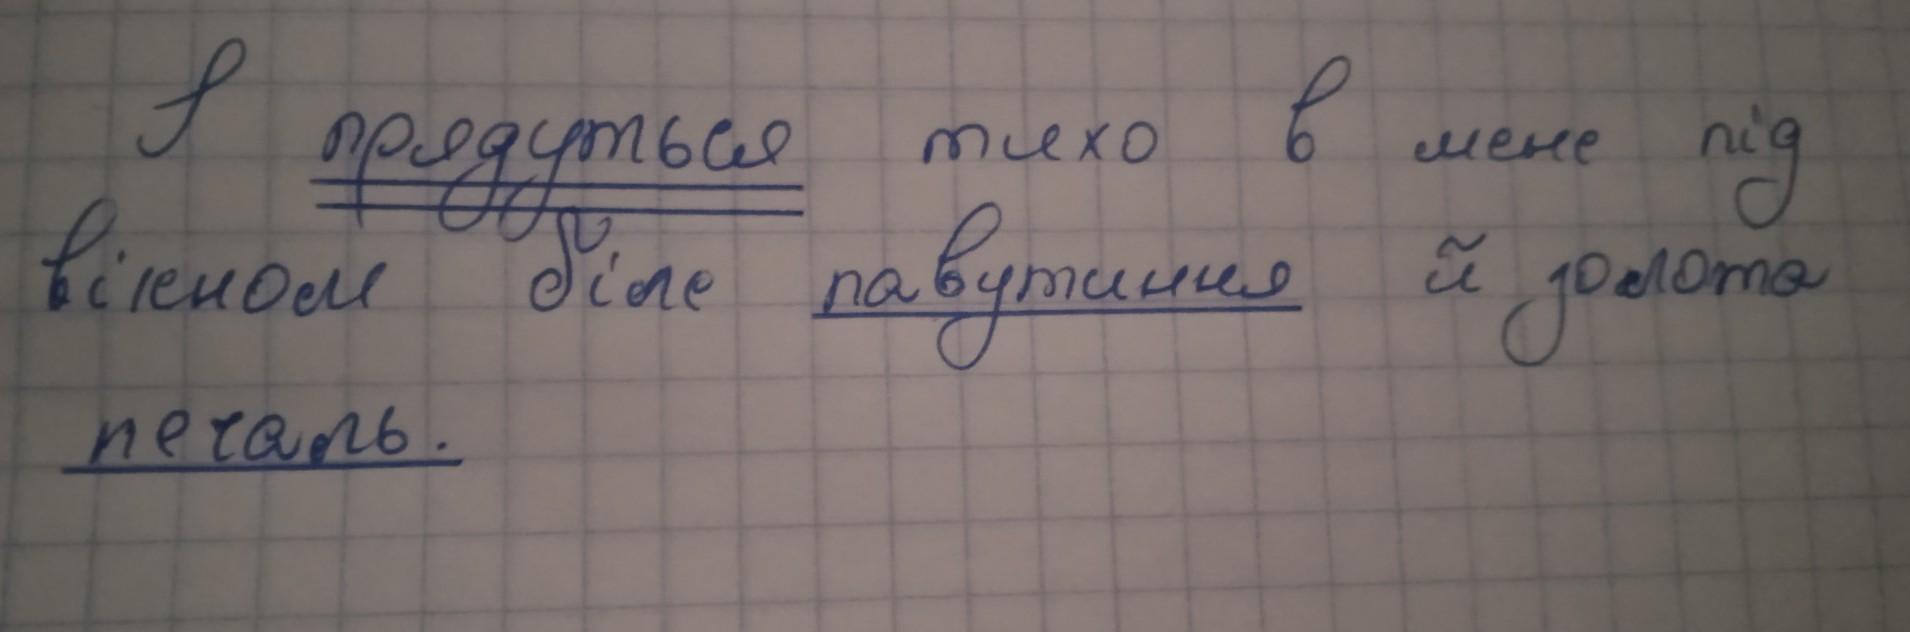 І прядуться тихо в мене під
вікном біле павутиння й золота
печаль.